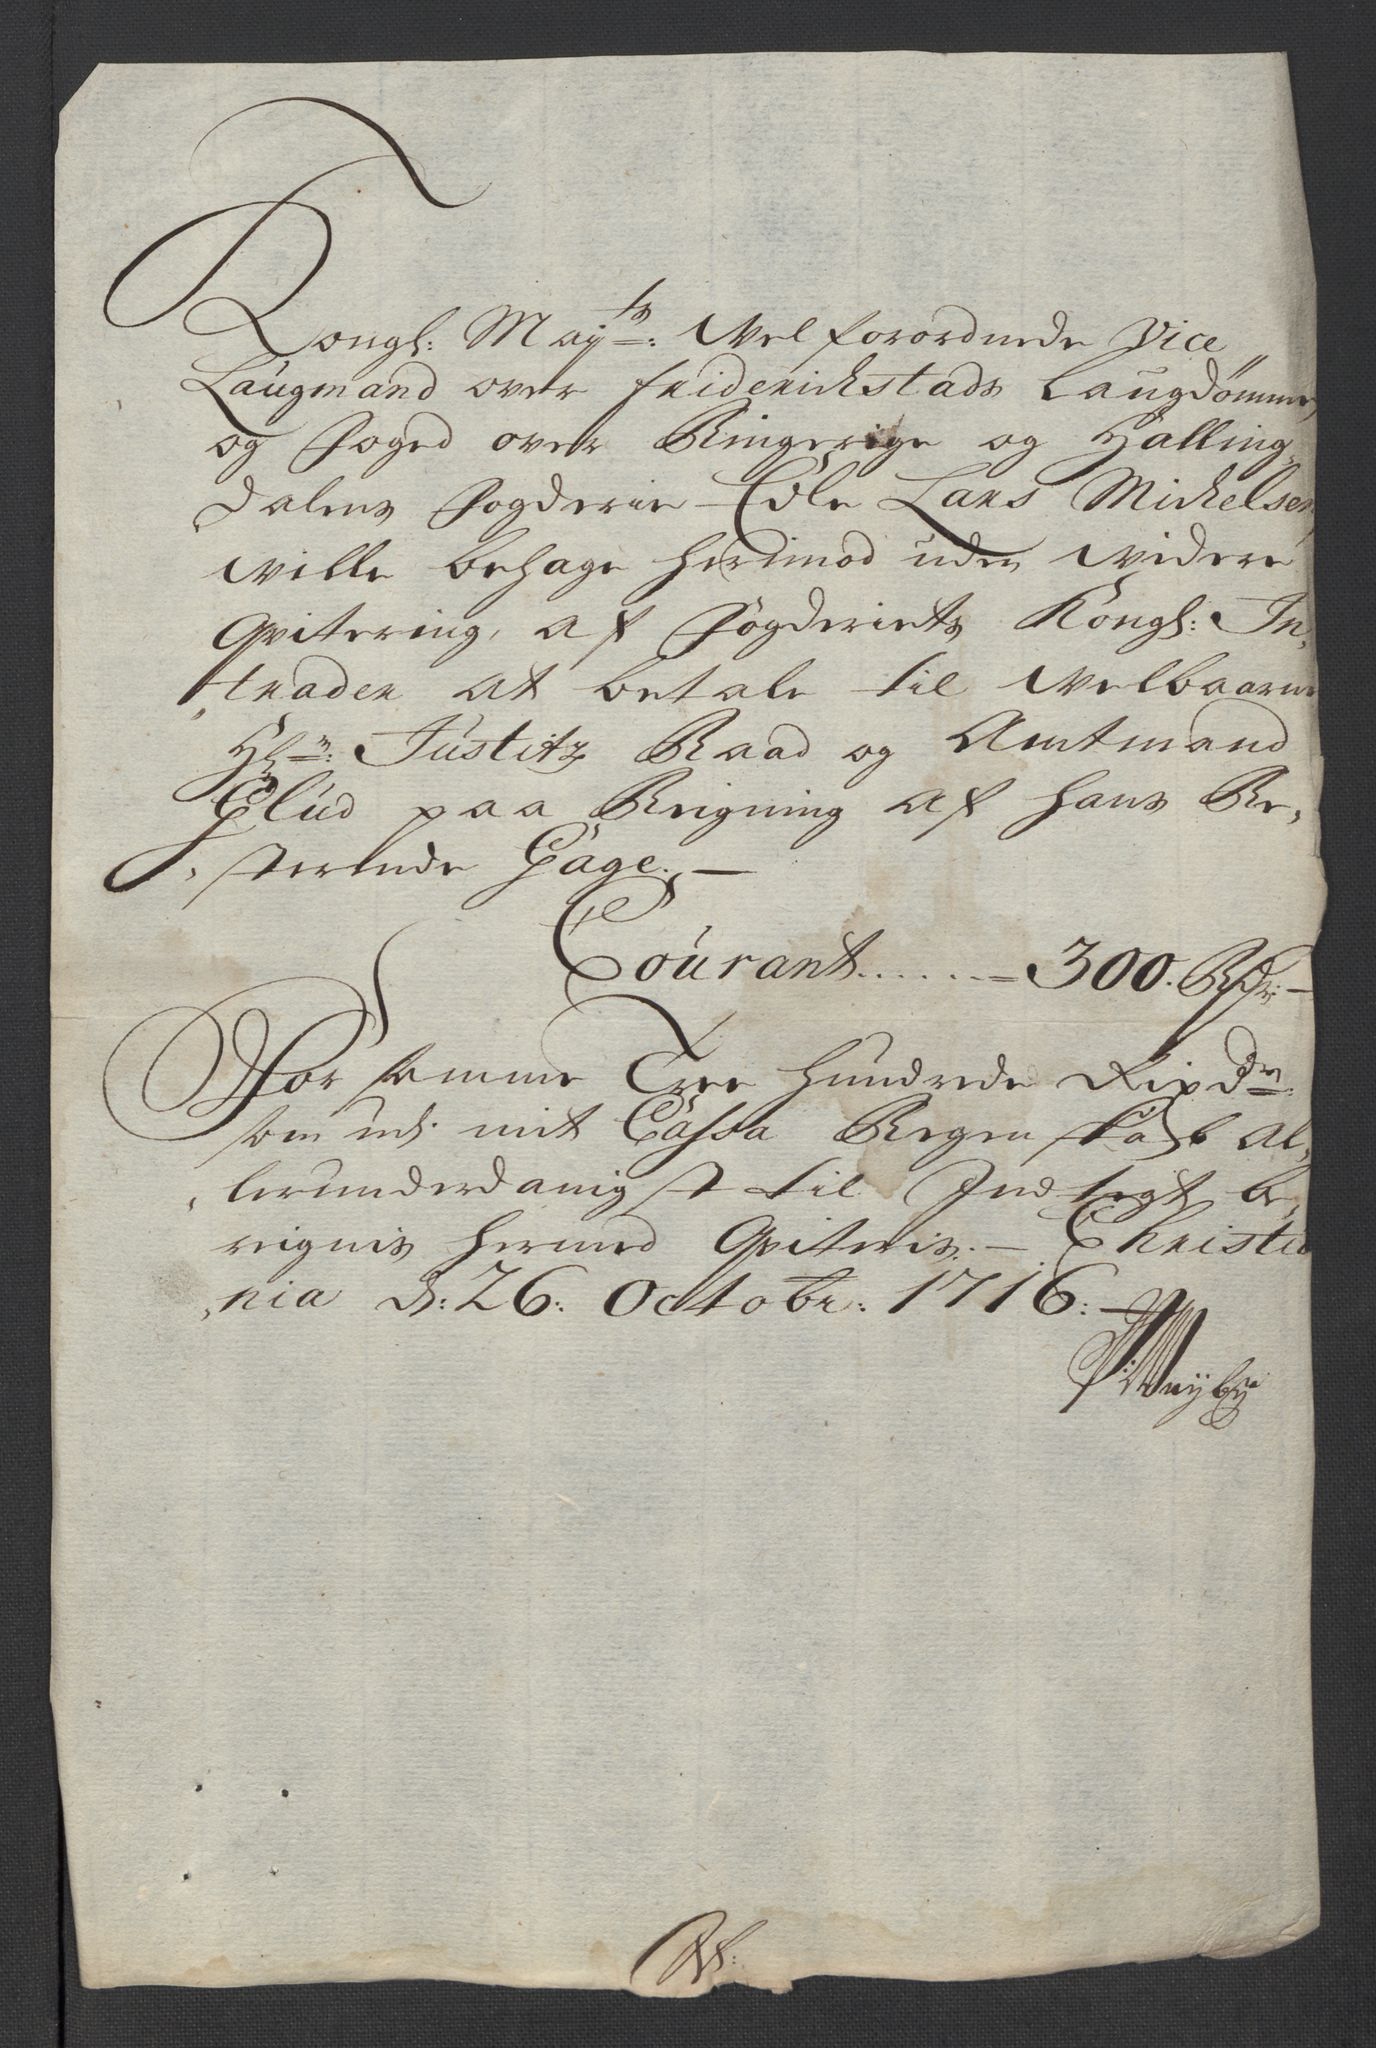 Kongl: Mayts: Vel forordnede Vice
Laugmand over Friderichstads Laugdømme,
og Foged over Ringerige og Halling,
dalens Fogderie Edle Lars Michelsen,
ville behage herimod uden videre
Qvitering, af Fogderiets Kongl: In,
,trader at betale til Velbaarne
Hrn: Justitz Raad og Amtmand
Glud paa Reigning af hans Re,
,sterende Gage. —
Courant ...... = 300. Rdr: —
For samme Tree Hundrede Rixdr
som udj mit Cassa Regenskab al,
,lerunderdanigst til Indtegt be,
reignis hermed Qviteris. — Christia
,nia d: 26: Octobr: 1716: —